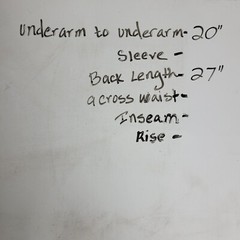 underarm to underarm- 20"
Sleeve -
Back Length- 27"
across waist-
Inseam -
Rise -